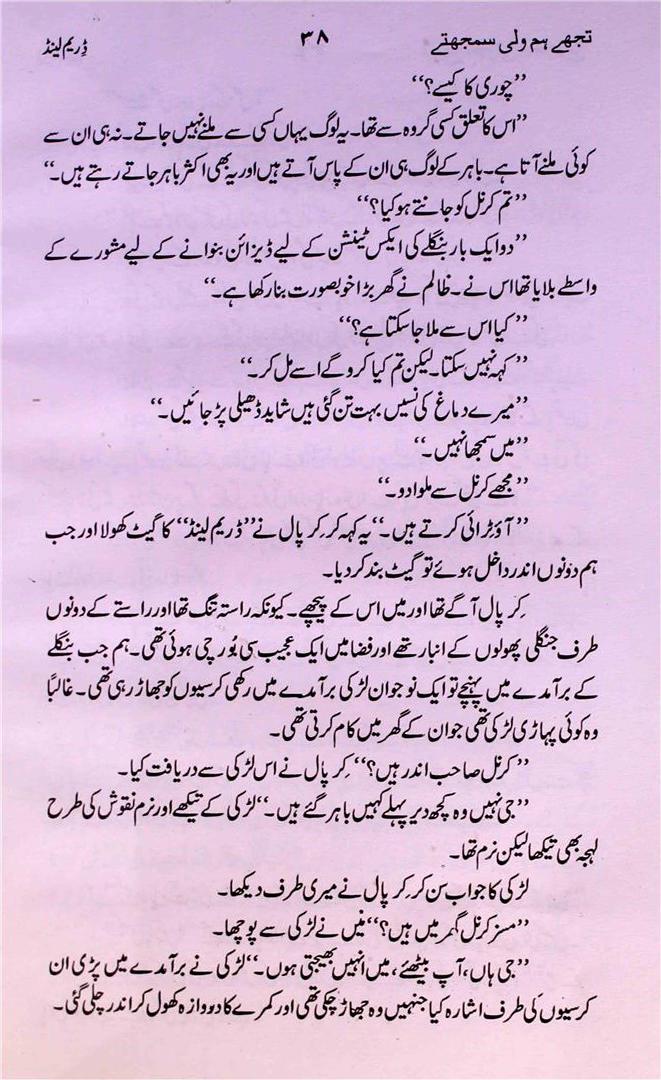 تجھے ہم ولی سمجھتے ۳۸ ڈریم لینڈ
’’چوری کا کیسے؟‘‘
’’اس کا تعلق کسی گروہ سے تھا۔ یہ لوگ یہاں کسی سے ملنے نہیں جاتے۔ نہ ہی ان سے
کوئی ملنے آتا ہے۔ باہر کے لوگ ہی ان کے پاس آتے ہیں اور یہ بھی اکثر باہر جاتے رہتے ہیں۔‘‘
’’تم کرنل کو جانتے ہو کیا؟‘‘
’’دو ایک بار بنگلے کی ایکس ٹینشن کے لیے ڈیزائن بنوانے کے لیے مشورے کے
واسطے بلایا تھا اس نے۔ ظالم نے گھر بڑا خوبصورت بنا رکھا ہے۔‘‘
’’کیا اس سے ملا جا سکتا ہے؟‘‘
’’کہہ نہیں سکتا لیکن تم کیا کرو گے اسے مل کر۔‘‘
’’میرے دماغ کی نسیں بہت تن گئی ہیں شاید ڈھیلی پڑ جائیں۔‘‘
’’میں سمجھا نہیں۔‘‘
’’مجھے کرنل سے ملوا دو۔‘‘
’’آؤ ٹرائی کرتے ہیں۔‘‘ یہ کہہ کر کِرپال نے ’’ڈریم لینڈ‘‘ کا گیٹ کھولا اور جب
ہم دونوں اندر داخل ہوئے تو گیٹ بند کر دیا۔
کِرپال آگے تھا اور میں اس کے پیچھے۔ کیونکہ راستہ تنگ تھا اور راستے کے دونوں
طرف جنگلی پھولوں کے انبار تھے اور فضا میں ایک عجیب سی بُو رچی ہوئی تھی۔ ہم جب بنگلے
کے برآمدے میں پہنچے تو ایک نوجوان لڑکی برآمدے میں رکھی کرسیوں کو جھاڑ رہی تھی۔ غالباً
وہ کوئی پہاڑی لڑکی تھی جو ان کے گھر میں کام کرتی تھی۔
’’کرنل صاحب اندر ہیں؟‘‘ کِرپال نے اس لڑکی سے دریافت کیا۔
’’جی نہیں وہ کچھ دیر پہلے کہیں باہر گئے ہیں۔‘‘ لڑکی کے تیکھے اور نرم نقوش کی طرح
لہجہ بھی تیکھا لیکن نرم تھا۔
لڑکی کا جواب سن کر کِرپال نے میری طرف دیکھا۔
’’مسز کرنل گھر میں ہیں؟‘‘ میں نے لڑکی سے پوچھا۔
’’جی ہاں، آپ بیٹھئے، میں انہیں بھیجتی ہوں۔‘‘ لڑکی نے برآمدے میں پڑی ان
کرسیوں کی طرف اشارہ کیا جنہیں وہ جھاڑ چکی تھی اور کمرے کا دووازہ کھول کر اندر چلی گئی۔